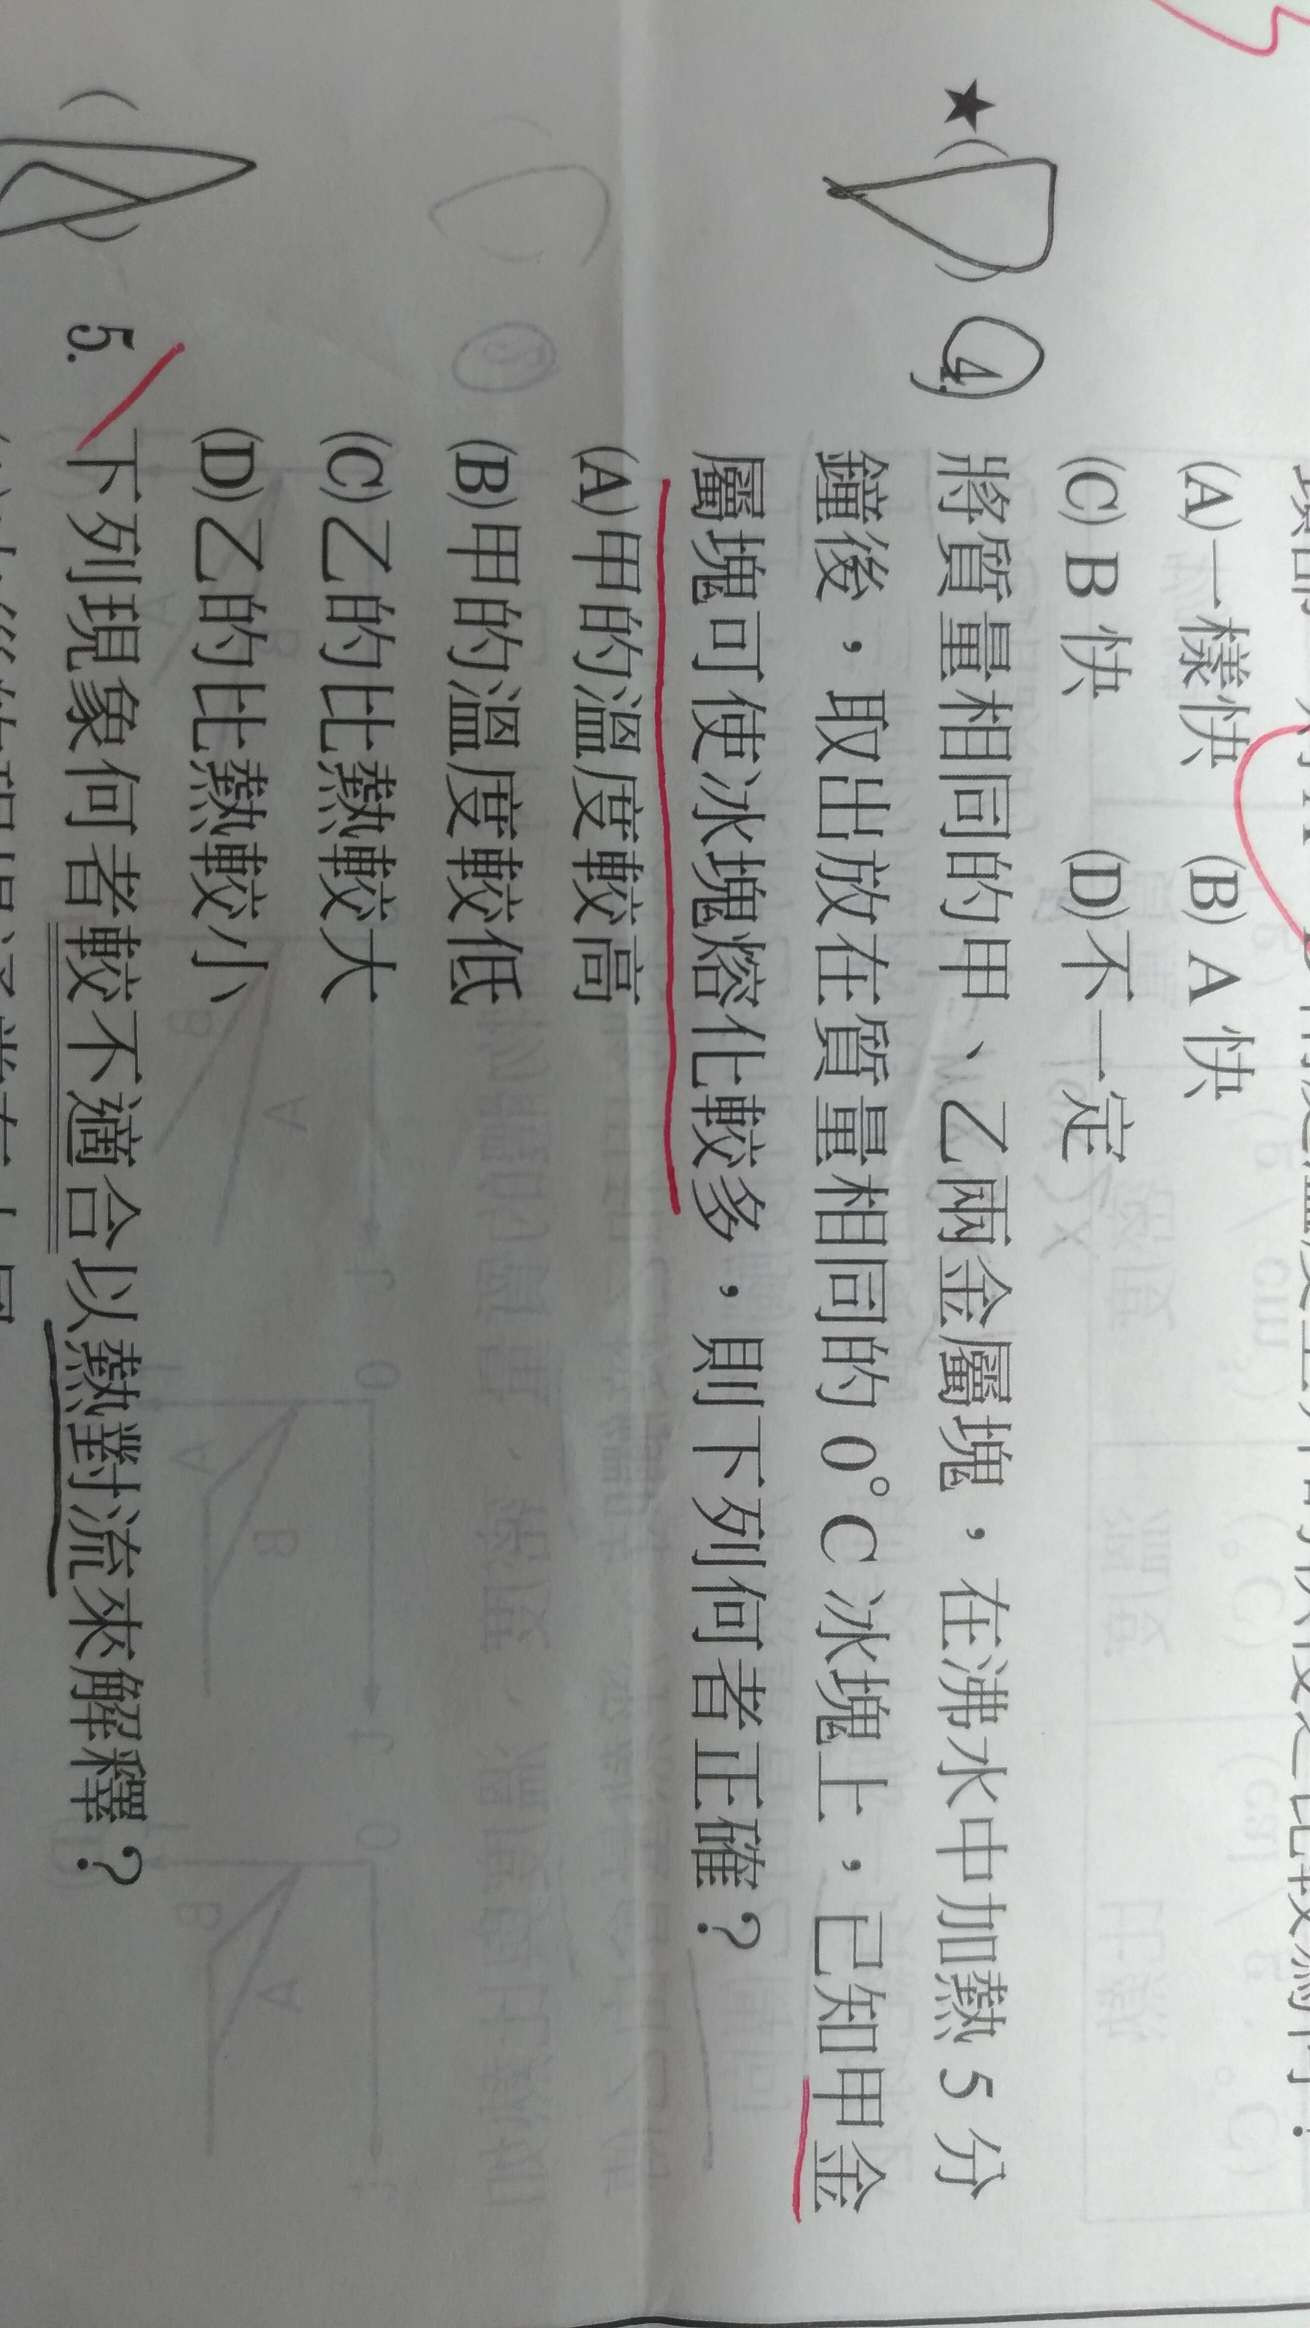 (A)一樣快 (B) A 快
(C) B 快 (D)不一定
★( D ) 4. 將質量相同的甲、乙兩金屬塊，在沸水中加熱 5 分
鐘後，取出放在質量相同的 0°C 冰塊上，已知甲金
屬塊可使冰塊熔化較多，則下列何者正確？
(A)甲的溫度較高
(B)甲的溫度較低
(C)乙的比熱較大
(D)乙的比熱較小
( A ) 5. 下列現象何者較不適合以熱對流來解釋？